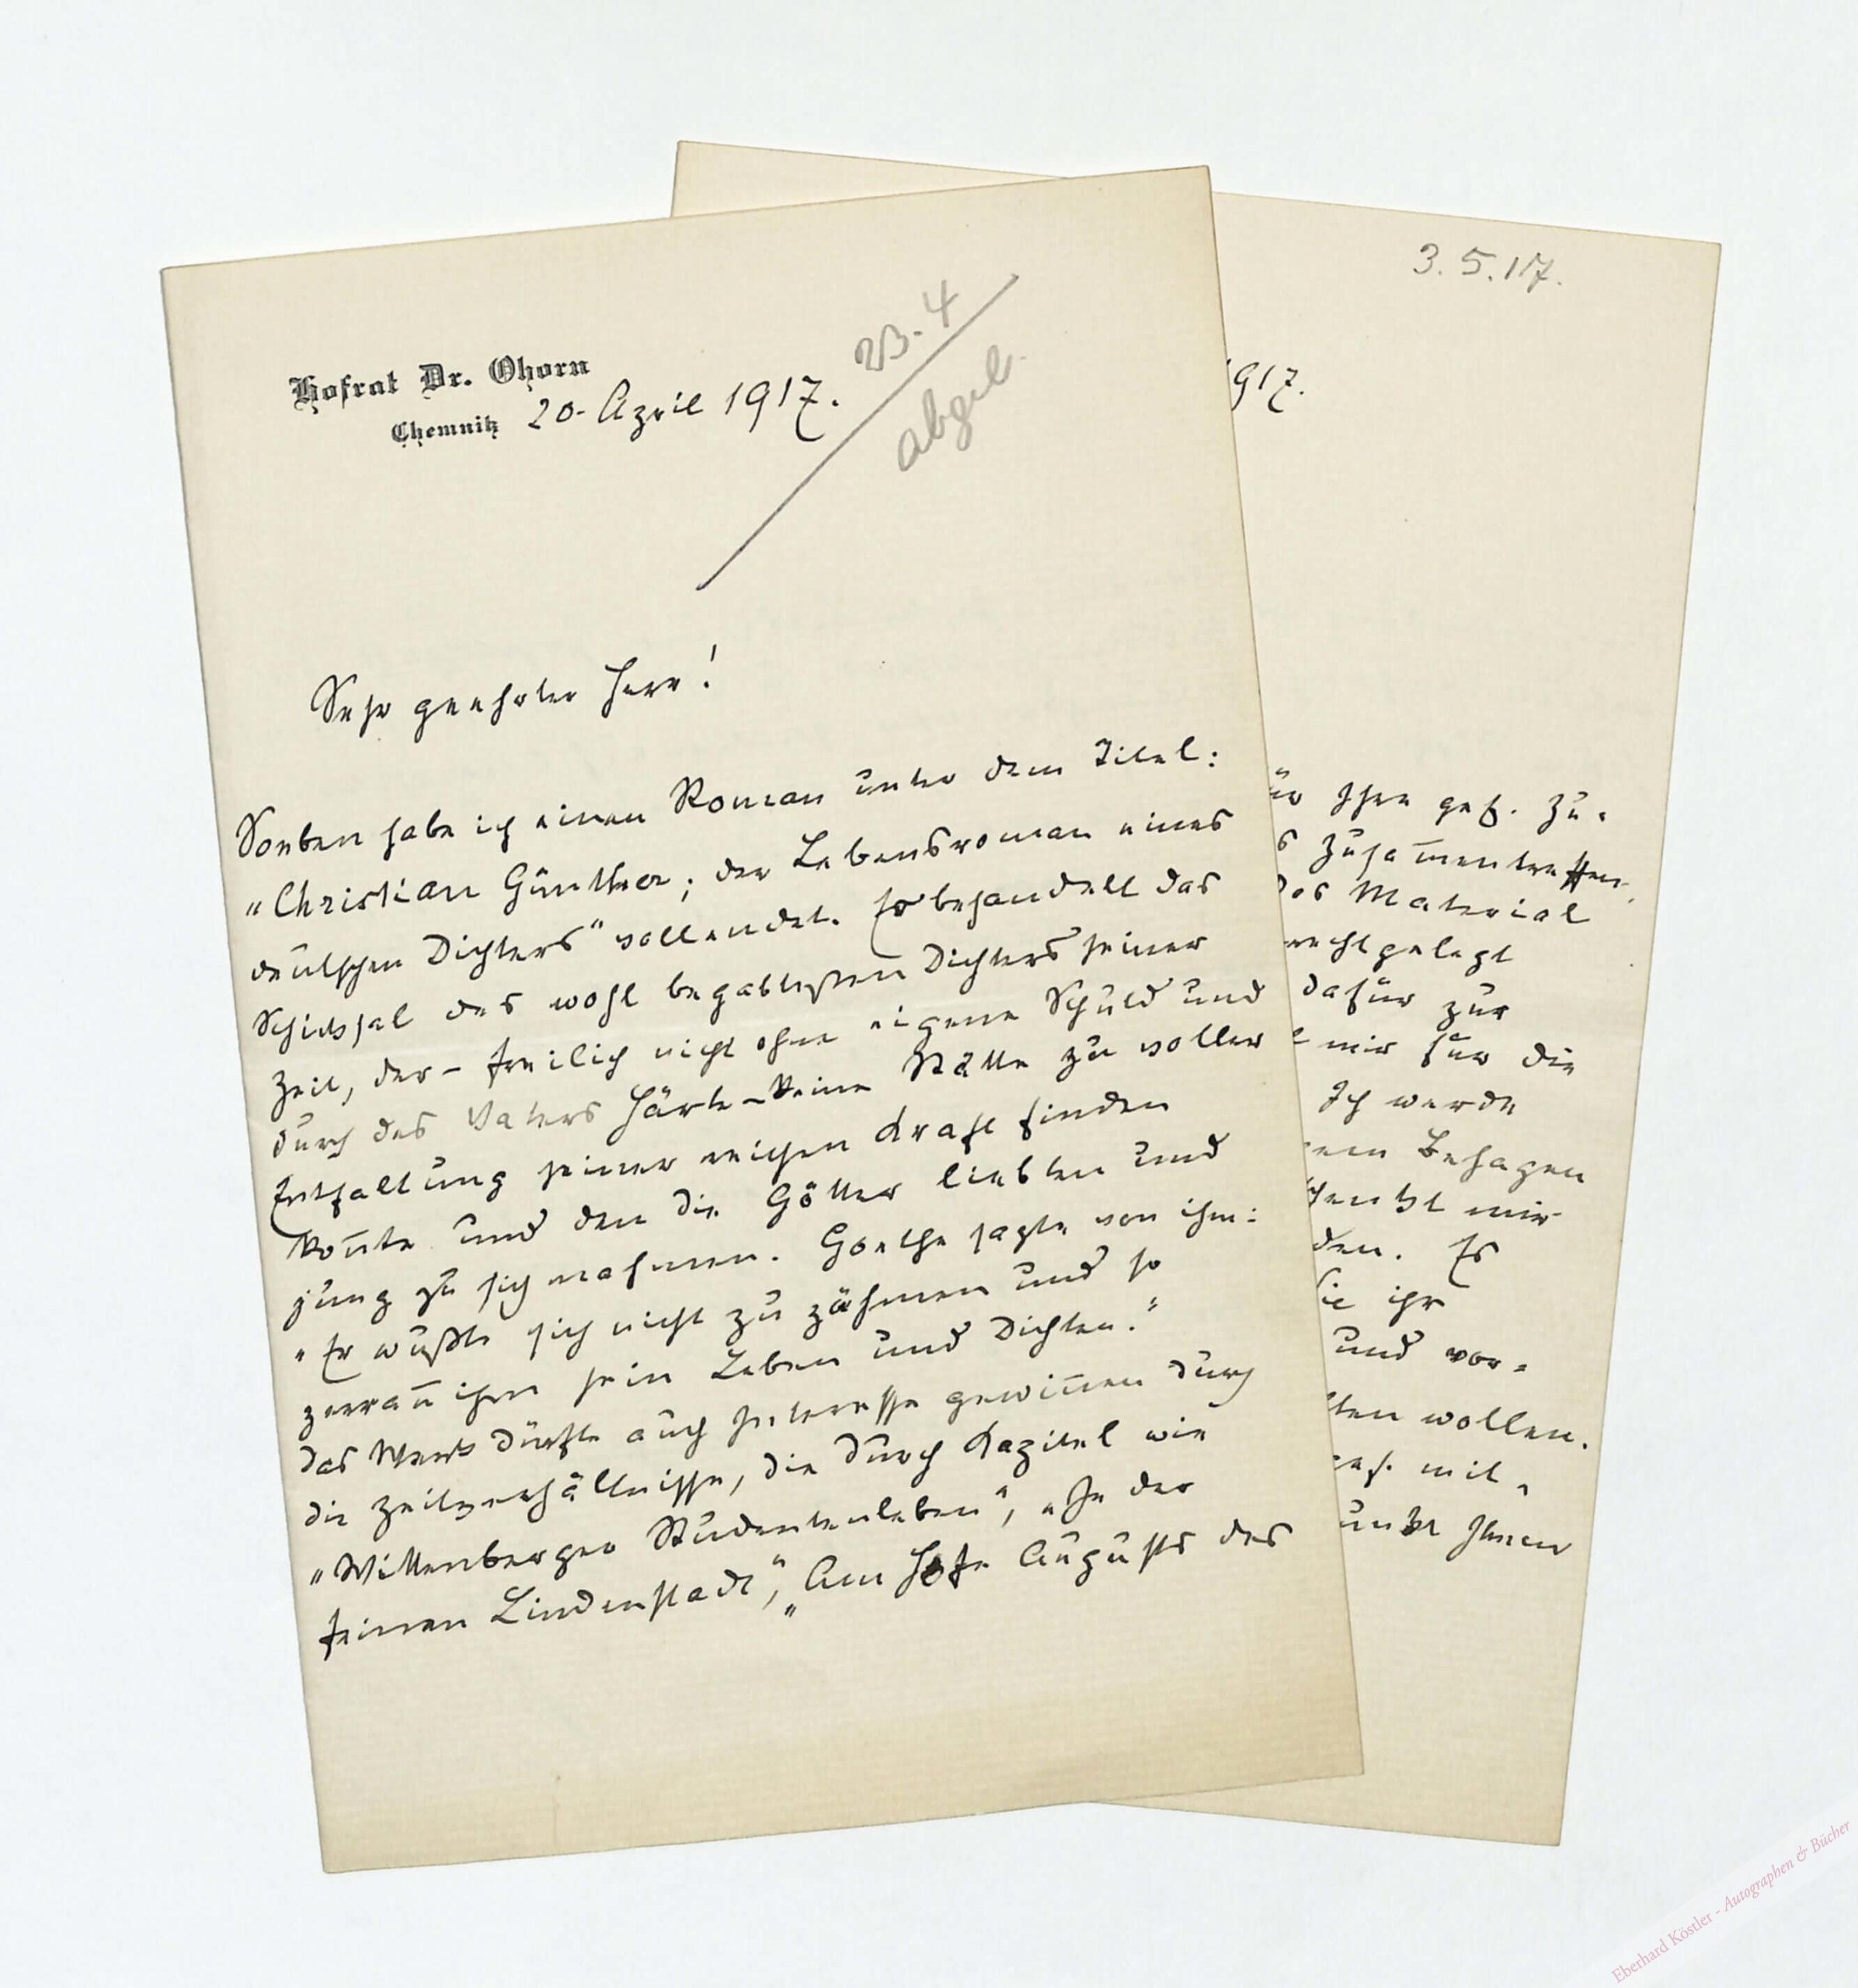 Hofrat Dr. Ohorn
Chemnitz 20. April 1917.
23.4
abgel.
Sehr geehrter Herr!
Soeben habe ich einen Roman unter dem Titel:
"Christian Günther; der Lebensroman eines
deutschen Dichters" vollendet. Er behandelt das
Schicksal des wohl begabtesten Dichters seiner
Zeit, der – freilich nicht ohne eigene Schuld und
durch des Vaters Härte – keine Stätte zu voller
Entfaltung seiner reichen Kraft finden
kon̄te und den die Götter liebten und
jung zu sich nahmen. Goethe sagte von ihm:
"Er wußte sich nicht zu zähmen und so
zerran̄ ihm sein Leben und Dichten."
Das Werk dürfte auch Interesse gewin̄en durch
die Zeitverhältnisse, die durch Kapitel wie
"Wittenberger Studentenleben", "In der
feinen Lindenstadt", "Am Hofe Augusts des
3.5.17.
1917.
Ihre gef. Zu-
Zusam̄entreffen
Material
recht gelegt
dafür zur
mir für die
Ich werde
Behagen
schenkt mir
den. Es
Sie ihr
und vor-
wollen.
mit
Ihnen
Eberhard Köstler - Autographen & Bücher